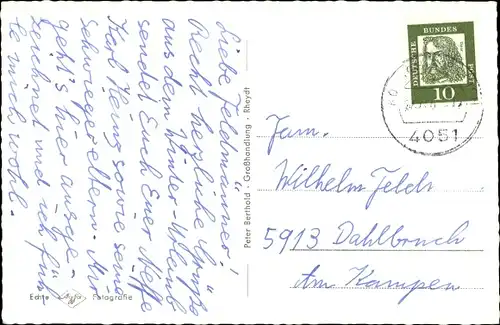 Liebe Feldmänner!
Recht herzliche Grüße
aus dem Winter-Urlaub
sendet Euch Euer Neffe
Karl Heinz sowie seine
Schwiegereltern. Mir
geht's hier ausge-
zeichnet und ich füh-
le mich wohl.
Echte Agfa Fotografie
Peter Berthold - Großhandlung - Rheydt
DEUTSCHE
BUNDES
POST
10
4051
Fam.
Wilhelm
5913 Dahlbruch
Am Kampen